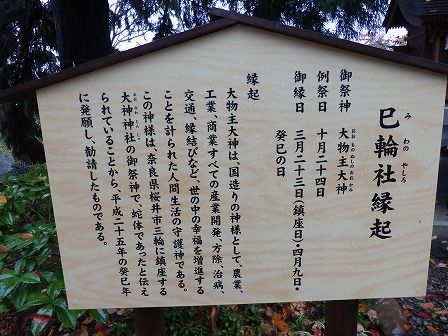 巳輪社縁起
みわのやしろ
御祭神　大物主大神
おおものぬしのおおかみ
例祭日　十月二十四日
御縁日　三月二十三日(鎮座日)・四月九日・
癸巳の日
縁起
大物主大神は、国造りの神様として、農業、
工業、商業すべての産業開発、方除、治病、
交通、縁結びなど、世の中の幸福を増進する
ことを計られた人間生活の守護神である。
この神様は、奈良県桜井市三輪に鎮座する
大神神社の御祭神で、蛇体であったと伝え
られていることから、平成二十五年の癸巳年
に発願し、勧請したものである。